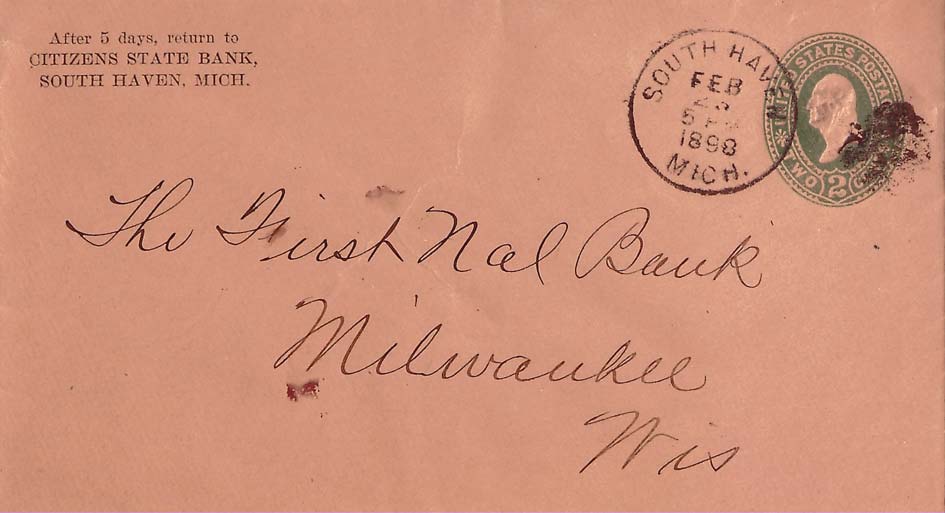 After 5 days, return to
CITIZENS STATE BANK,
SOUTH HAVEN, MICH.
SOUTH HAVEN
FEB
5 P
1898
MICH.
UNITED STATES POSTA
TWO 2
The First Nal Bank
Milwaukee
Wis